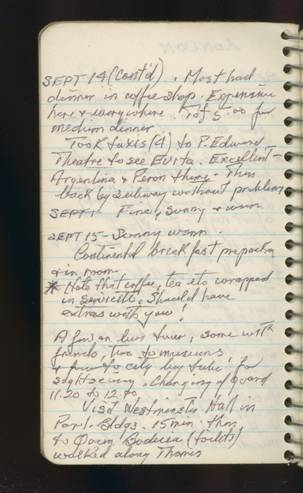 SEPT 14 (Cont'd). Most had
dinner in coffee shop. Expensive
here & everywhere. 5.00 for
medium dinner.
Took taxis (4) to P. Edward
Theatre to see Evita. Excellent -
Argentina & Peron theme - Then
back by subway without problem
SEPT 1 Fine, sunny & warm
SEPT 15 - Sunny warm.
Continental breakfast
& in room.
* Note that coffee, tea etc wrapped
in serviette, should have
extras with you!
A few on bus tour, some with
friends, two to museums
& few to city by tube, for
sightseeing. Changing of Guard
11.20 to 12.00
Visit Westminster Hall in
Parl. Bldgs. 15 min. then
to Boadicea (toilets)
walked along Thames